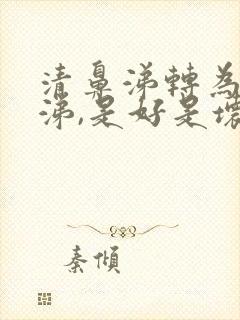 清鼻涕轉為
涕,是好是壞
秦傾